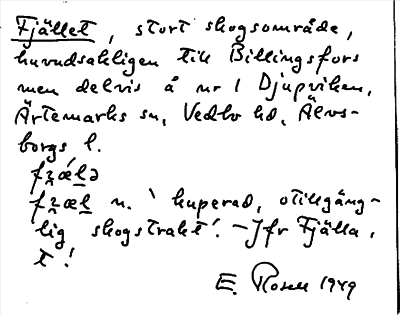 Fjället, stort skogsområde,
huvudsakligen till Billingsfors
men delvis å nr 1 Djupviken,
Ärtemarks sn, Vedbo hd, Älvs-
borgs l.
fʒǽlə
fʒæl n. 'kuperad, otillgäng-
lig skogstrakt'. – Jfr Fjälla,
t!
E. Rosell 1949